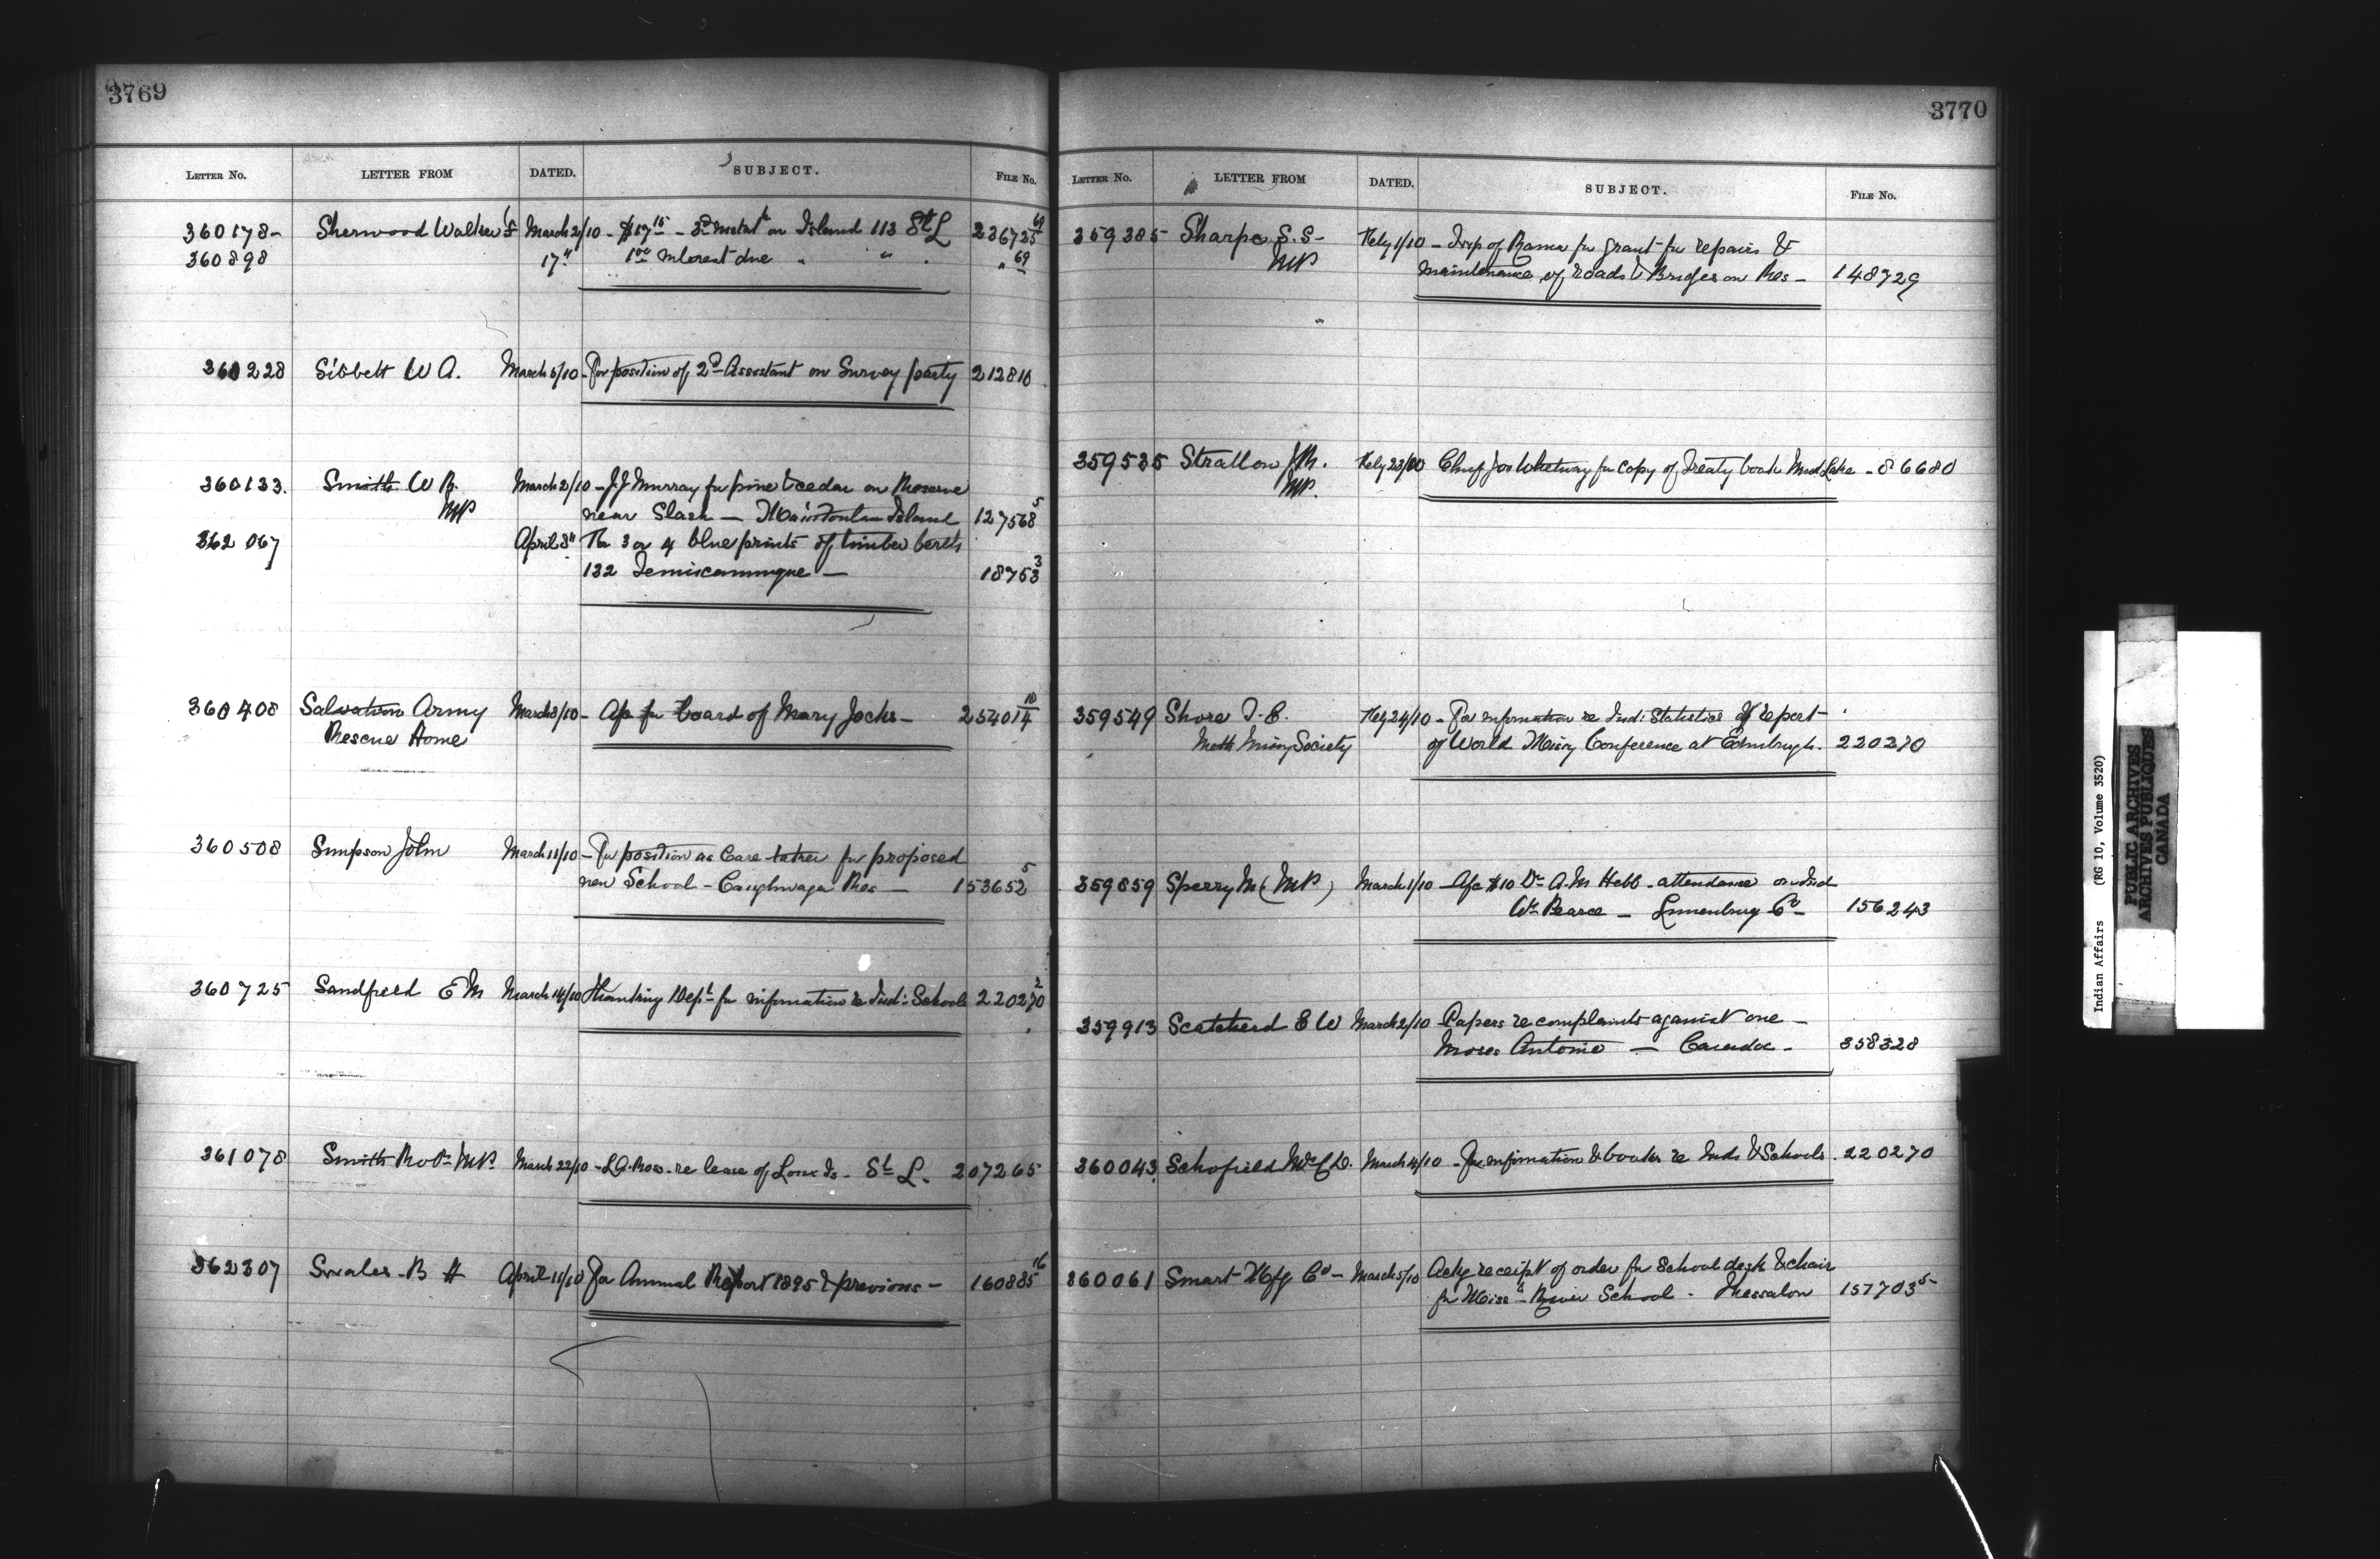 3769
LETTER No. LETTER FROM DATED. SUBJECT. FILE No.
360178 - Sherwood Walter F March 2/10 - $17 15 - 3rd instalt on Island 113 St L 236725 69
360898 17" 1 interest due " " . " 69
360228 Sibbett W A. March 5/10 - For position of 2d Assistant on Survey party 212810
360133. Smith W R. March 2/10 - J J Murray for pine & cedar on Reserve
MP near Slash — Manitoulin Island 127568 5
362067 April 8" For 3 or 4 blue prints of timber berth
132 Temiscamingue — 18753 3
360408 Salvation Army March 8/10 - A/c for board of Mary Jocks - 254014 10
Rescue Home
360508 Simpson John March 11/10 - For position as Care taker for proposed
new School - Caughnaga Res — 153652 5
360725 Sandfield E M March 14/10 Thanking Dept for information re Ind: Schools 220270 2
361078 Smith Robt MP. March 22/10 - L.G. Ross. re lease of Loux Is. St L. 207265
362307 Swales - B H April 11/10 For Annual Report 1895 & previous - 160885 16
3770
LETTER No. LETTER FROM DATED. SUBJECT. FILE No.
359385 Sharpe S. S - Feby 1/10 - Twp of Rama for grant for repairs &
MP maintenance of roads & Bridges on Res - 148729
359535 Stratton J R. Feby 23/10 Chief Jos Whetung for copy of Treaty book Mud Lake - 86680
MP.
359549 Shore T. E. Feby 24/10 - For information re Ind: Statistics of report
Meth Missy Society of World Missy Conference at Edinburgh. 220270
359859 Sperry M (MP) March 1/10 - A/c $10 Dr A. M Hebb - attendance on Ind
Wm Pearce - Lunenburg Co - 156243
359913 Scatcherd E W March 2/10 - Papers re complaints against one -
Moses Antonie — Caradoc - 358328
360043 Schofield Mrs C D. March 4/10 - For information & books re Inds & Schools. 220270
360061 Smart Mfg Co - March 5/10 Ackg receipt of order for School desk & chair
for Missa River School - Thessalon 157703 5
Indian Affairs (RG 10, Volume 3520)
PUBLIC ARCHIVES
ARCHIVES PUBLIQUES
CANADA